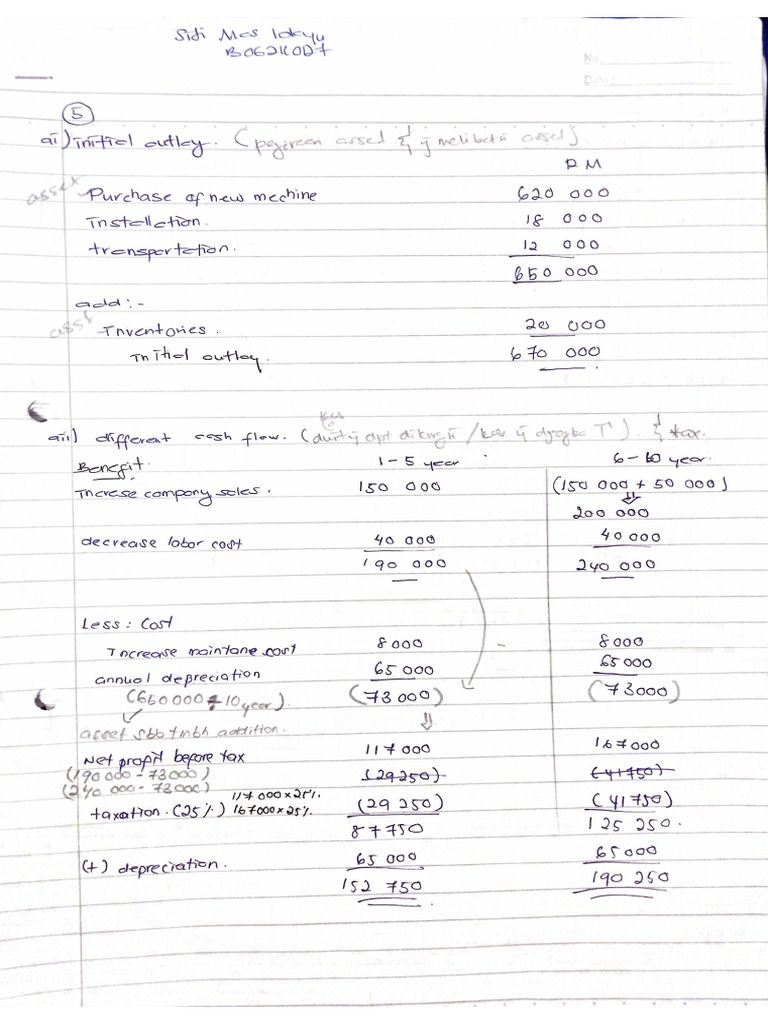 Siti Mas
No.
Date:
5
ai) initial outlay. (
RM
asset Purchase of new mechine 620 000
Installetion. 18 000
transportetion. 12 000
650 000
add:-
asset Inventories. 20 000
Initial outley. 670 000
aii) different cash flow. ( tax.
Benefit. 1-5 year 6-10 year.
Increse company seles. 150 000 (150 000 + 50 000)
200 000
decrease labor cost 40 000 40 000
190 000 240 000
Less: Cost
Increase maintane cost 8000 8000
annual depreciation 65 000 65 000
(650000 ÷ 10 year). (73 000) (73000)
asset sbb tmbh addition.
Net profit before tax 117 000 167000
(190 000 - 73000) (29250) (41750)
(240 000 - 73000) 117 000 x 25%
taxation. (25%) 167000 x 25% (29 250) (41 750)
87750 125 250.
(+) depreciation. 65 000 65000
152 750 190 250